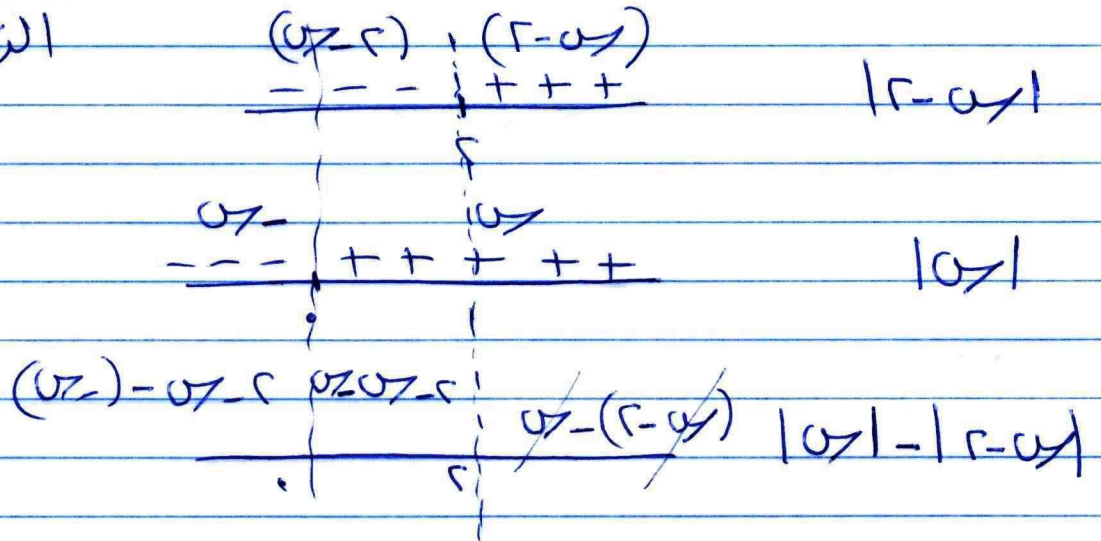 الت
(٢ - س) (س - ٢)
- - - + + +
|س - ٢|
٢
- س س
- - - + + + + +
|س|
٠
٢ - س - (- س) ٢ - س - س (س - ٢) - س |س - ٢| - |س|
٠ ٢